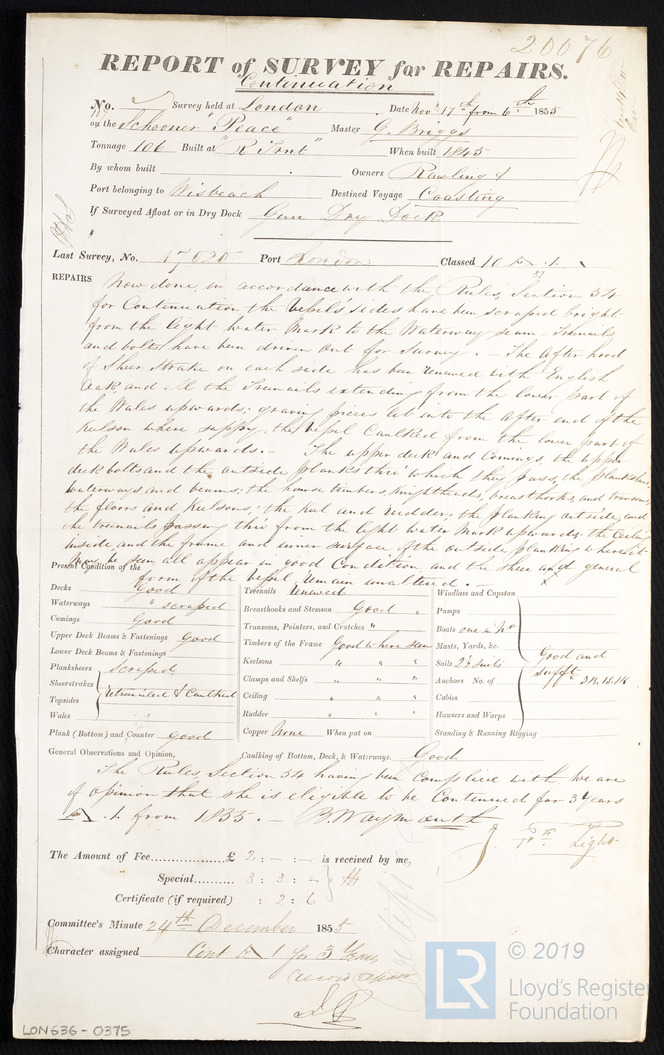 20076
REPORT of SURVEY for REPAIRS.
Continuation
No. Survey held at London Date Nov 17th from 6th 1855
on the Schooner "Peace" Master G. Briggs
Tonnage 106 Built at When built 1845
By whom built Owners Rawling &
Port belonging to Wisbeach Destined Voyage Coasting
If Surveyed Afloat or in Dry Dock Gun Dry Dock
Last Survey, No. 17020 Port London Classed 10 A .1.
REPAIRS Now done, in accordance with the Rules, Section 54
for Continuation the Vessel's sides have been scraped bright
from the light water mark to the Waterway seam. Treenails
and bolts have been driven out for Survey. - The after hood
of Sheer Strake on each side has been renewed with English
Oak, and all the Treenails extending from the lower part of
the Wales upwards; graving pieces let into the after end of the
kelson where sappy, the Vessel Caulked from the lower part of
the Wales upwards. - The upper deck and Comings, the upper
deck bolts and the outside planks thro' which they pass, the planksheers
waterways and beams, the hawse timbers, Knightheads, breasthooks, and transoms,
the floors and Keelsons, the keel and rudder, the planking outside, and
the treenails passing thro' from the light water mark upwards, the Ceiling
inside, and the frame and inner surface of the outside planking where it
may be seen all appear in good Condition and the sheer and general
form of the vessel remain unaltered. -
Present Condition of the
Decks good
Waterways " scraped
Comings Good
Upper Deck Beams & Fastenings good
Lower Deck Beams & Fastenings
Planksheers Scraped
Sheerstrakes
Topsides
Wales
retreenailed & Caulked
Plank (Bottom) and Counter good
Treenails renewed
Breasthooks and Stemson Good "
Transoms, Pointers, and Crutches "
Timbers of the Frame Good where seen
Keelsons " " "
Clamps and Shelfs " " "
Ceiling " " "
Rudder " " "
Copper None When put on
Windlass and Capston
Pumps
Boats one in No
Masts, Yards, &c.
Sails 2 suits
Anchors No. of 3B. 1S. 1K
Cables
Hausers and Warps
Standing & Running Rigging
Good and
sufft
General Observations and Opinion, Caulking of Bottom, Deck, & Waterways. Good
The Rules, Section 54 having been Complied with we are
of opinion that she is eligible to be Continued for 3 Years
A .1. from 1855. - B. Waymouth
Light
The Amount of Fee £ 2 : - : - is received by me,
Special 3 : 3 : -
Certificate (if required) : 2 : 6
Committee's Minute 24th December 1855
Character assigned Cont A 1 for 3 Years
LON636 - 0375
© 2019
LR
Lloyd's Register
Foundation